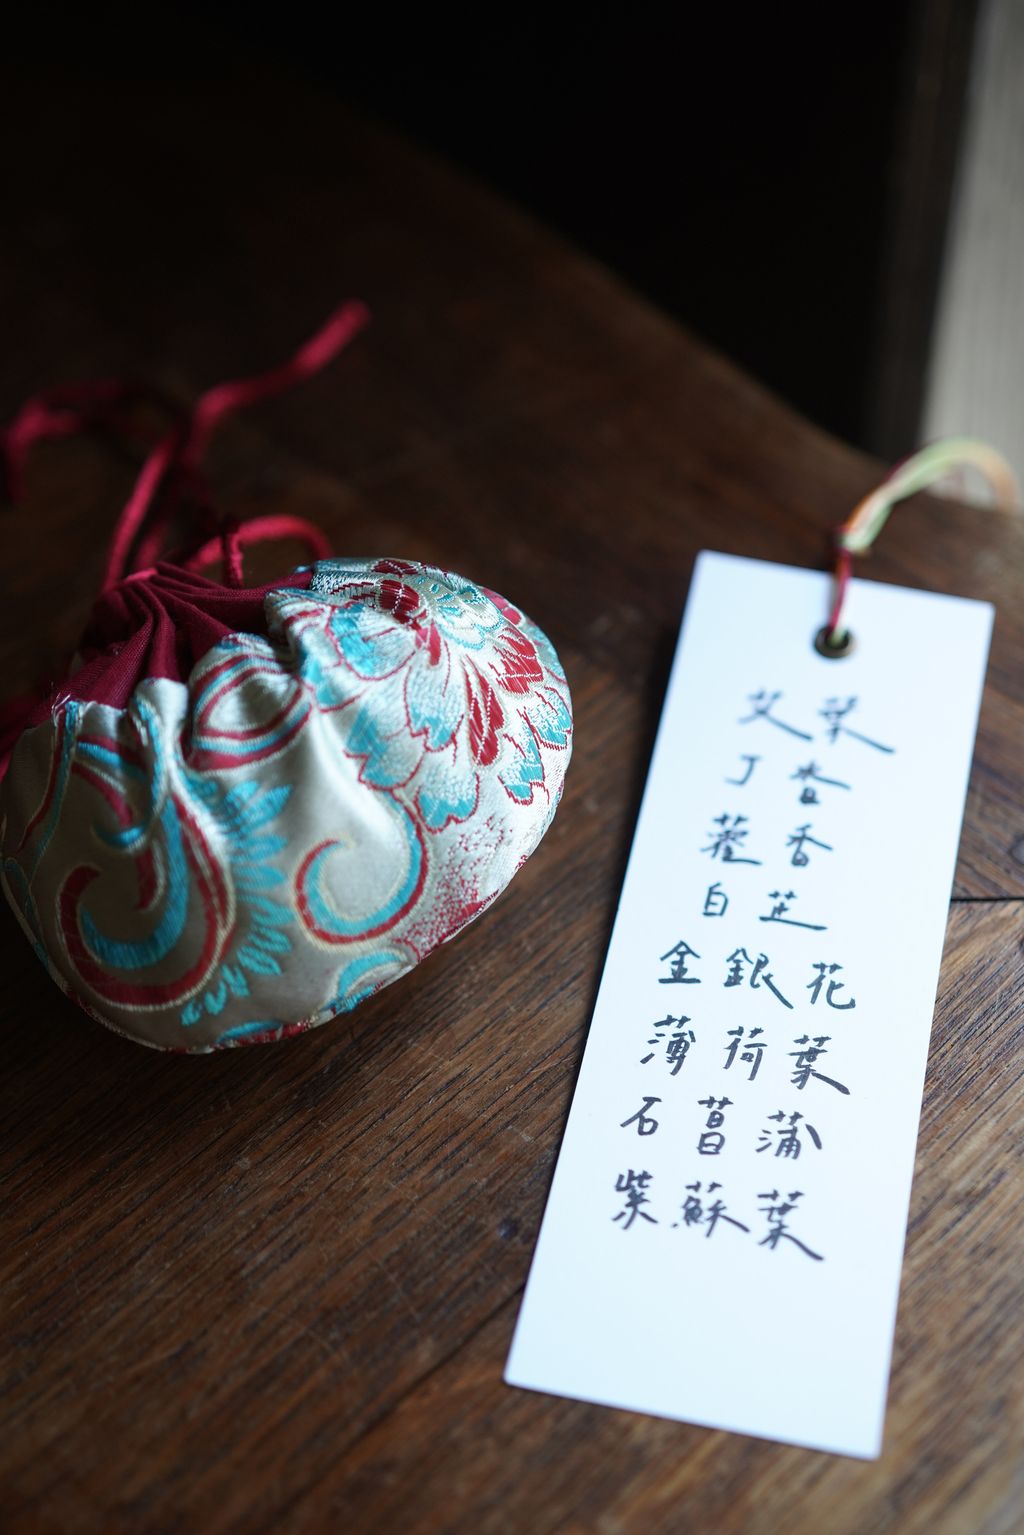 艾葉
丁香
藿香
白芷
金銀花
薄荷葉
石菖蒲
紫蘇葉